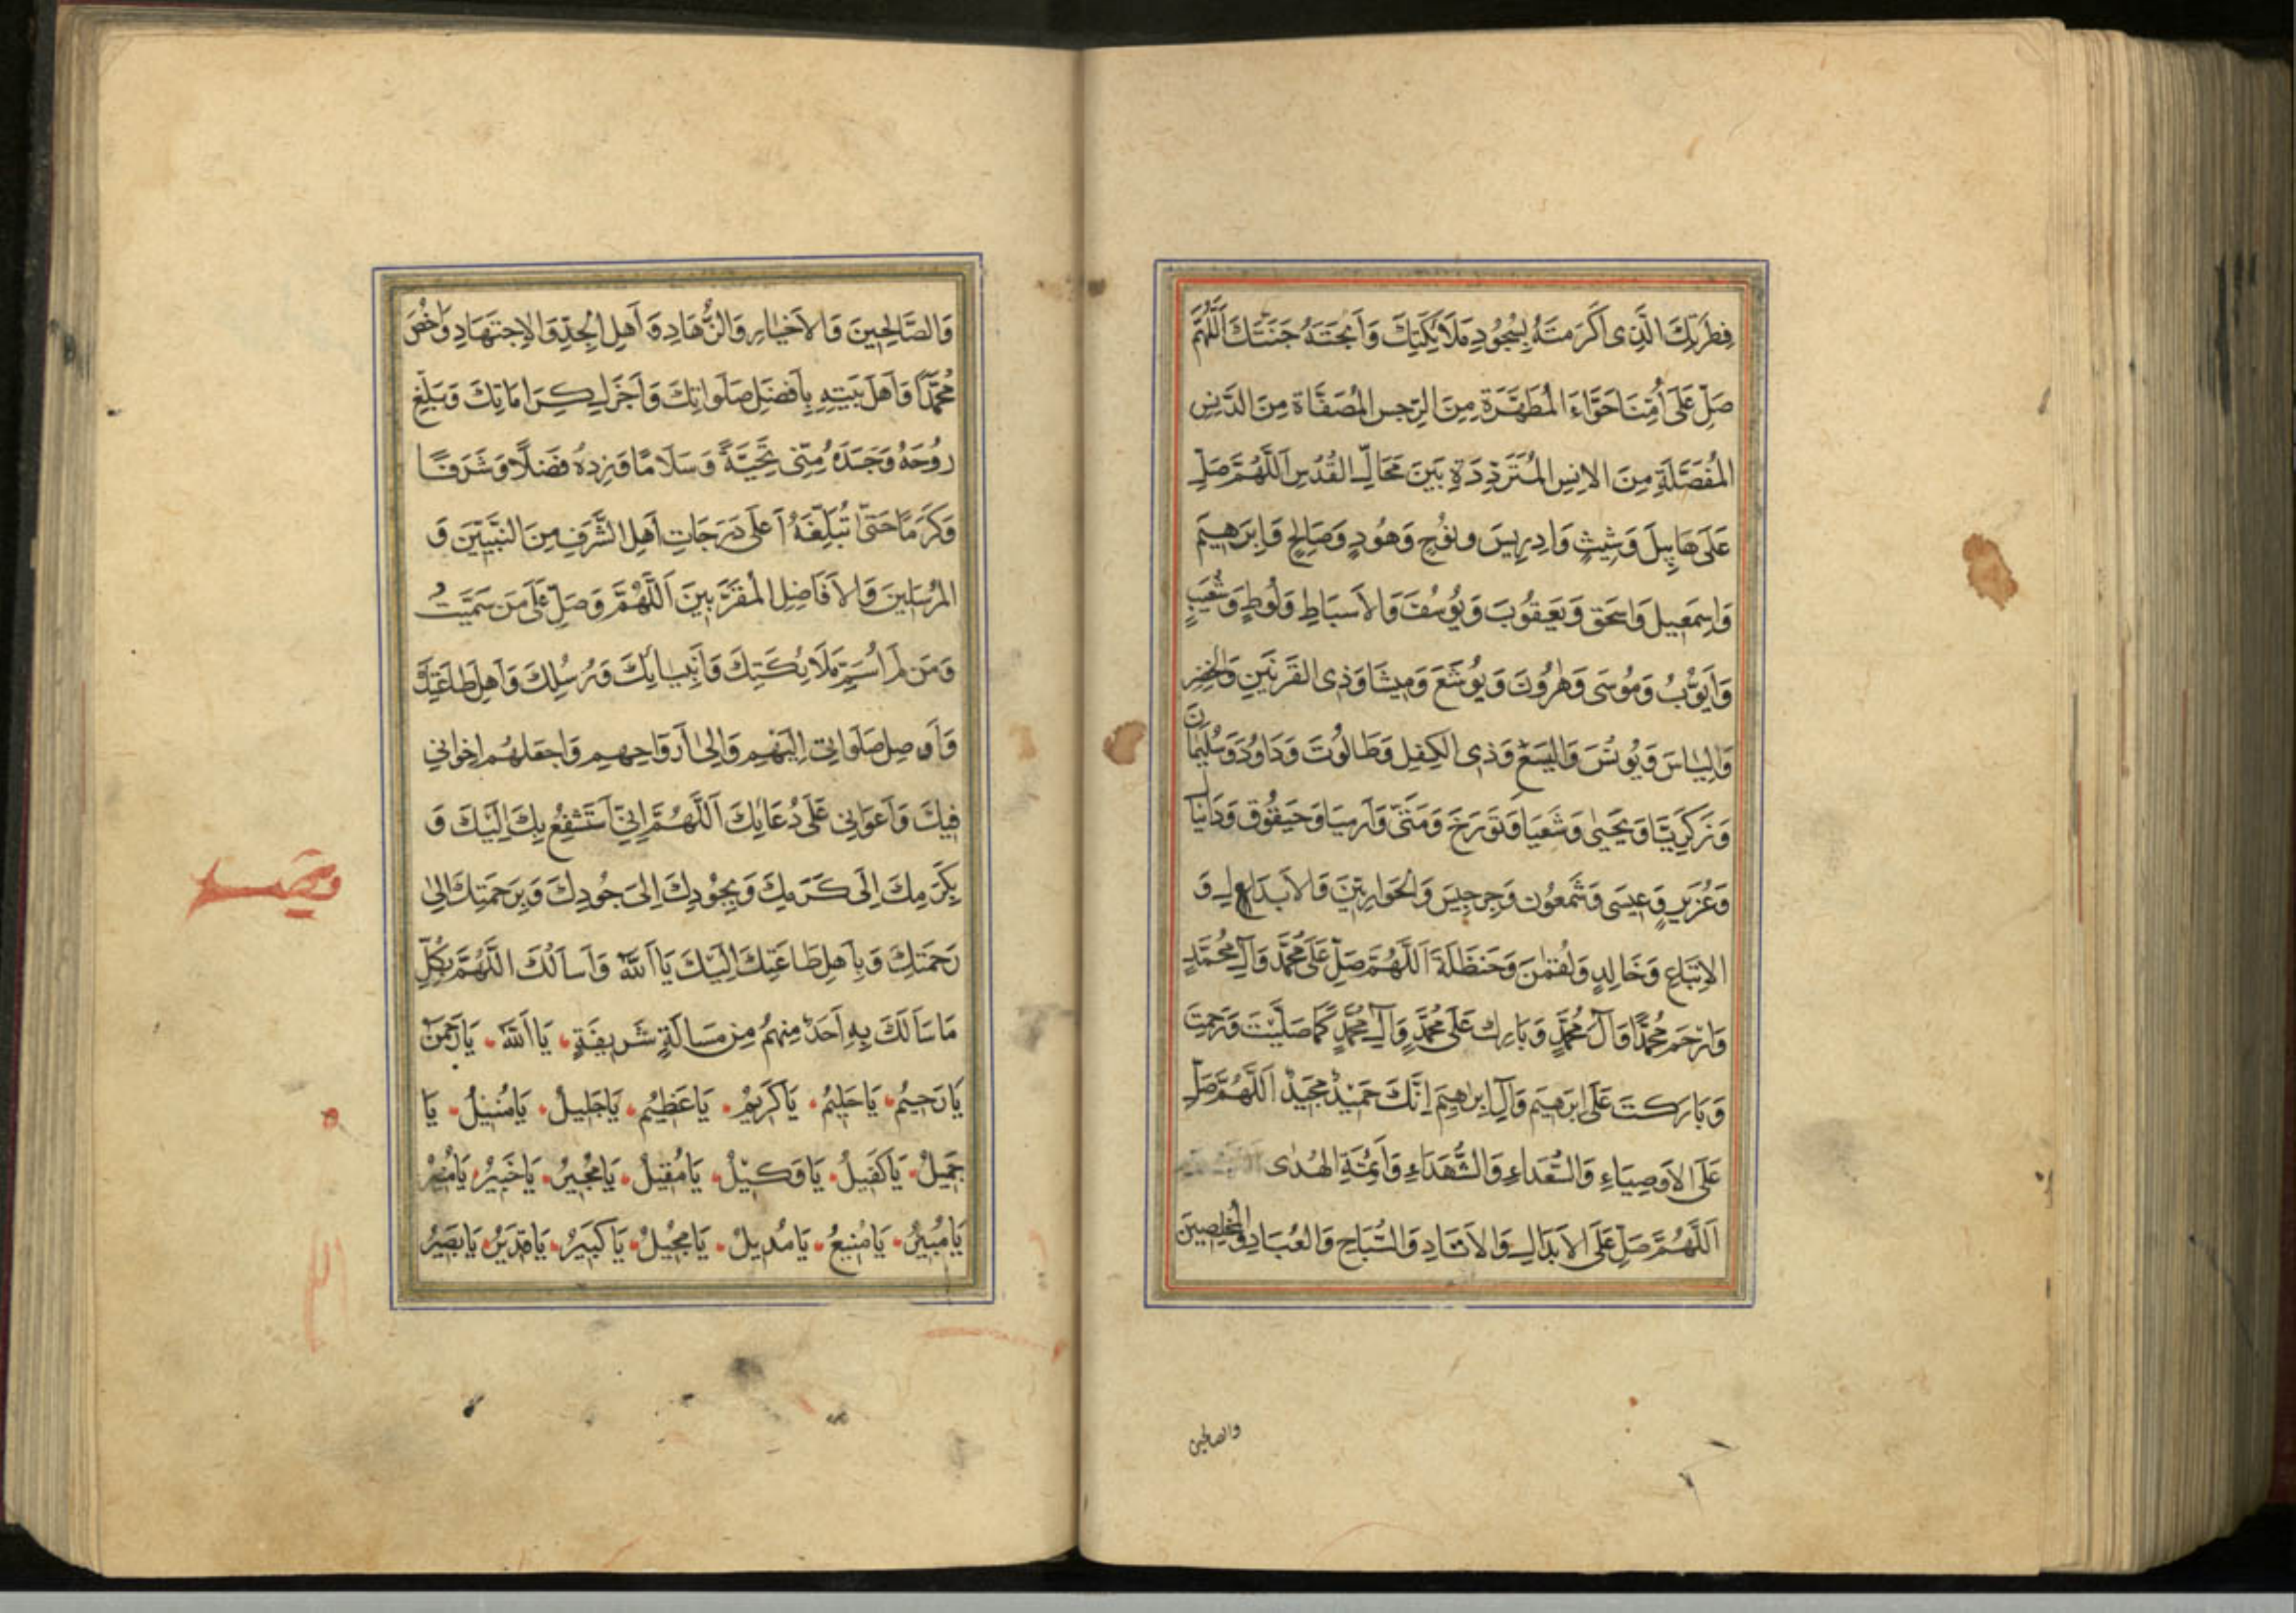 فِطرَتِكَ الَّذِى اَكرَمتَهُ بِسُجُودِ مَلَائِكَتِكَ وَاَبَحتَهُ جَنَّتَكَ اَللّٰهُمَّ
صَلِّ عَلَى اُمِّنَا حَوَّاءَ المُطَهَّرَةِ مِنَ الرِّجسِ المُصَفَّاةِ مِنَ الدَّنَسِ
المُفَضَّلَةِ مِنَ الاِنسِ المُتَرَدِّدَةِ بَينَ مَحَالِّ القُدُسِ اَللّٰهُمَّ صَلِّ
عَلَى هَابِيلَ وَشِيثٍ وَاِدرِيسَ ونُوحٍ وَهُودٍ وَصَالِحٍ وَاِبرَهِيمَ
وَاِسمَعِيلَ وَاِسحَقَ وَيَعقُوبَ وَيُوسُفَ وَالاَسبَاطِ وَلُوطٍ وَشُعَيبٍ
وَاَيُّوبَ وَمُوسَى وَهٰرُونَ وَيُوشَعَ وَمِيشَا وَذِى القَرنَينِ وَالخِضرِ
وَاِليَاسَ وَيُونُسَ وَاليَسَعَ وَذِى الكِفلِ وَطَالُوتَ وَدَاوُدَ وَسُلَيمَانَ
وَزَكَرِيَّا وَيَحيٰى وَشَعيَا وَتَورَخَ وَمَتّٰى وَاَرمِيَا وَحَيقُوقَ وَدَانيَالَ
وَعُزَيرٍ وَعِيسَى وَشَمعُونَ وَجِرجِيسَ وَالحَوَارِيِّينَ وَالاَبدَالِ وَ
الاِتبَاعِ وَخَالِدٍ وَلُقمٰنَ وَحَنظَلَةَ اَللّٰهُمَّ صَلِّ عَلَى مُحَمَّدٍ وَآلِ مُحَمَّدٍ
وَارحَم مُحَمَّدًا وَآلَ مُحَمَّدٍ وَبَارِك عَلَى مُحَمَّدٍ وَآلِ مُحَمَّدٍ كَمَا صَلَّيتَ وَرَحِمتَ
وَبَارَكتَ عَلَى اِبرَهِيمَ وَآلِ اِبرٰهِيمَ اِنَّكَ حَمِيدٌ مَجِيدٌ اَللّٰهُمَّ صَلِّ
عَلَى الاَوصِيَاءِ وَالسُّعَدَاءِ وَالشُّهَدَاءِ وَاَئِمَّةِ الهُدٰى
اَللّٰهُمَّ صَلِّ عَلَى الاَبدَالِ وَالاَوتَادِ وَالسُّيَّاحِ وَالعُبَّادِ وَالمُخلِصِينَ
والصالحين
وَالصَّالِحِينَ وَالاَخيَارِ وَالزُّهَّادِ وَاَهلِ الجِدِّ وَالاِجتِهَادِ وَاخصُص
مُحَمَّدًا وَاَهلَ بَيتِهِ بِاَفضَلِ صَلَوَاتِكَ وَاَجزَلِ كَرَامَاتِكَ وَبَلِّغ
رُوحَهُ وَجَسَدَهُ مِنِّى تَحِيَّةً وَسَلَامًا وَزِدهُ فَضلًا وَشَرَفًا
وَكَرَمًا حَتّٰى تُبَلِّغَهُ اَعلَى دَرَجَاتِ اَهلِ الشَّرَفِ مِنَ النَّبِيِّينَ وَ
المُرسَلِينَ وَالاَفَاضِلِ المُقَرَّبِينَ اَللّٰهُمَّ وَصَلِّ عَلَى مَن سَمَّيتُ
وَمَن لَم اُسَمِّ مِن مَلَائِكَتِكَ وَاَنبِيَائِكَ وَرُسُلِكَ وَاَهلِ طَاعَتِكَ
وَاَوصِل صَلَوَاتِى اِلَيهِم وَاِلٰى اَروَاحِهِم وَاجعَلهُم اِخوَانِى
فِيكَ وَاَعوَانِى عَلَى دُعَائِكَ اَللّٰهُمَّ اِنِّى اَستَشفِعُ بِكَ اِلَيكَ وَ
بِكَرَمِكَ اِلَى كَرَمِكَ وَبِجُودِكَ اِلَى جُودِكَ وَبِرَحمَتِكَ اِلٰى
رَحمَتِكَ وَبِاَهلِ طَاعَتِكَ اِلَيكَ يَا اَللّٰهُ وَاَسأَلُكَ اللّٰهُمَّ بِكُلِّ
مَا سَاَلَكَ بِهِ اَحَدٌ مِنهُم مِن مَسأَلَةٍ شَرِيفَةٍ يَا اَللّٰهُ يَا رَحمٰنُ
يَا رَحِيمُ يَا حَلِيمُ يَا كَرِيمُ يَا عَظِيمُ يَا جَلِيلُ يَا مُنِيلُ يَا
جَمِيلُ يَا كَفِيلُ يَا وَكِيلُ يَا مُقِيلُ يَا مُجِيرُ يَا خَبِيرُ يَا مُنِيرُ
يَا مُبِيرُ يَا مَنِيعُ يَا مُدِيلُ يَا مُحِيلُ يَا كَبِيرُ يَا قَدِيرُ يَا بَصِيرُ